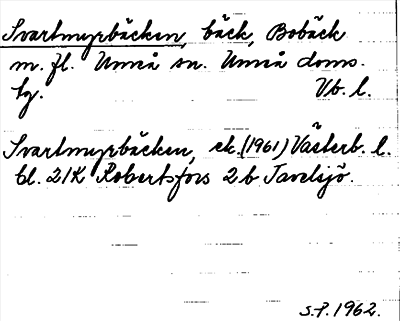 Svartmyrbäcken, bäck, Bobäck
m. fl. Umeå sn. Umeå doms.
tg. Vb. l.
Svartmyrbäcken, ek. (1961) Västerb. l.
bl. 21K Robertsfors 2b Tavelsjö.
S.P. 1962.